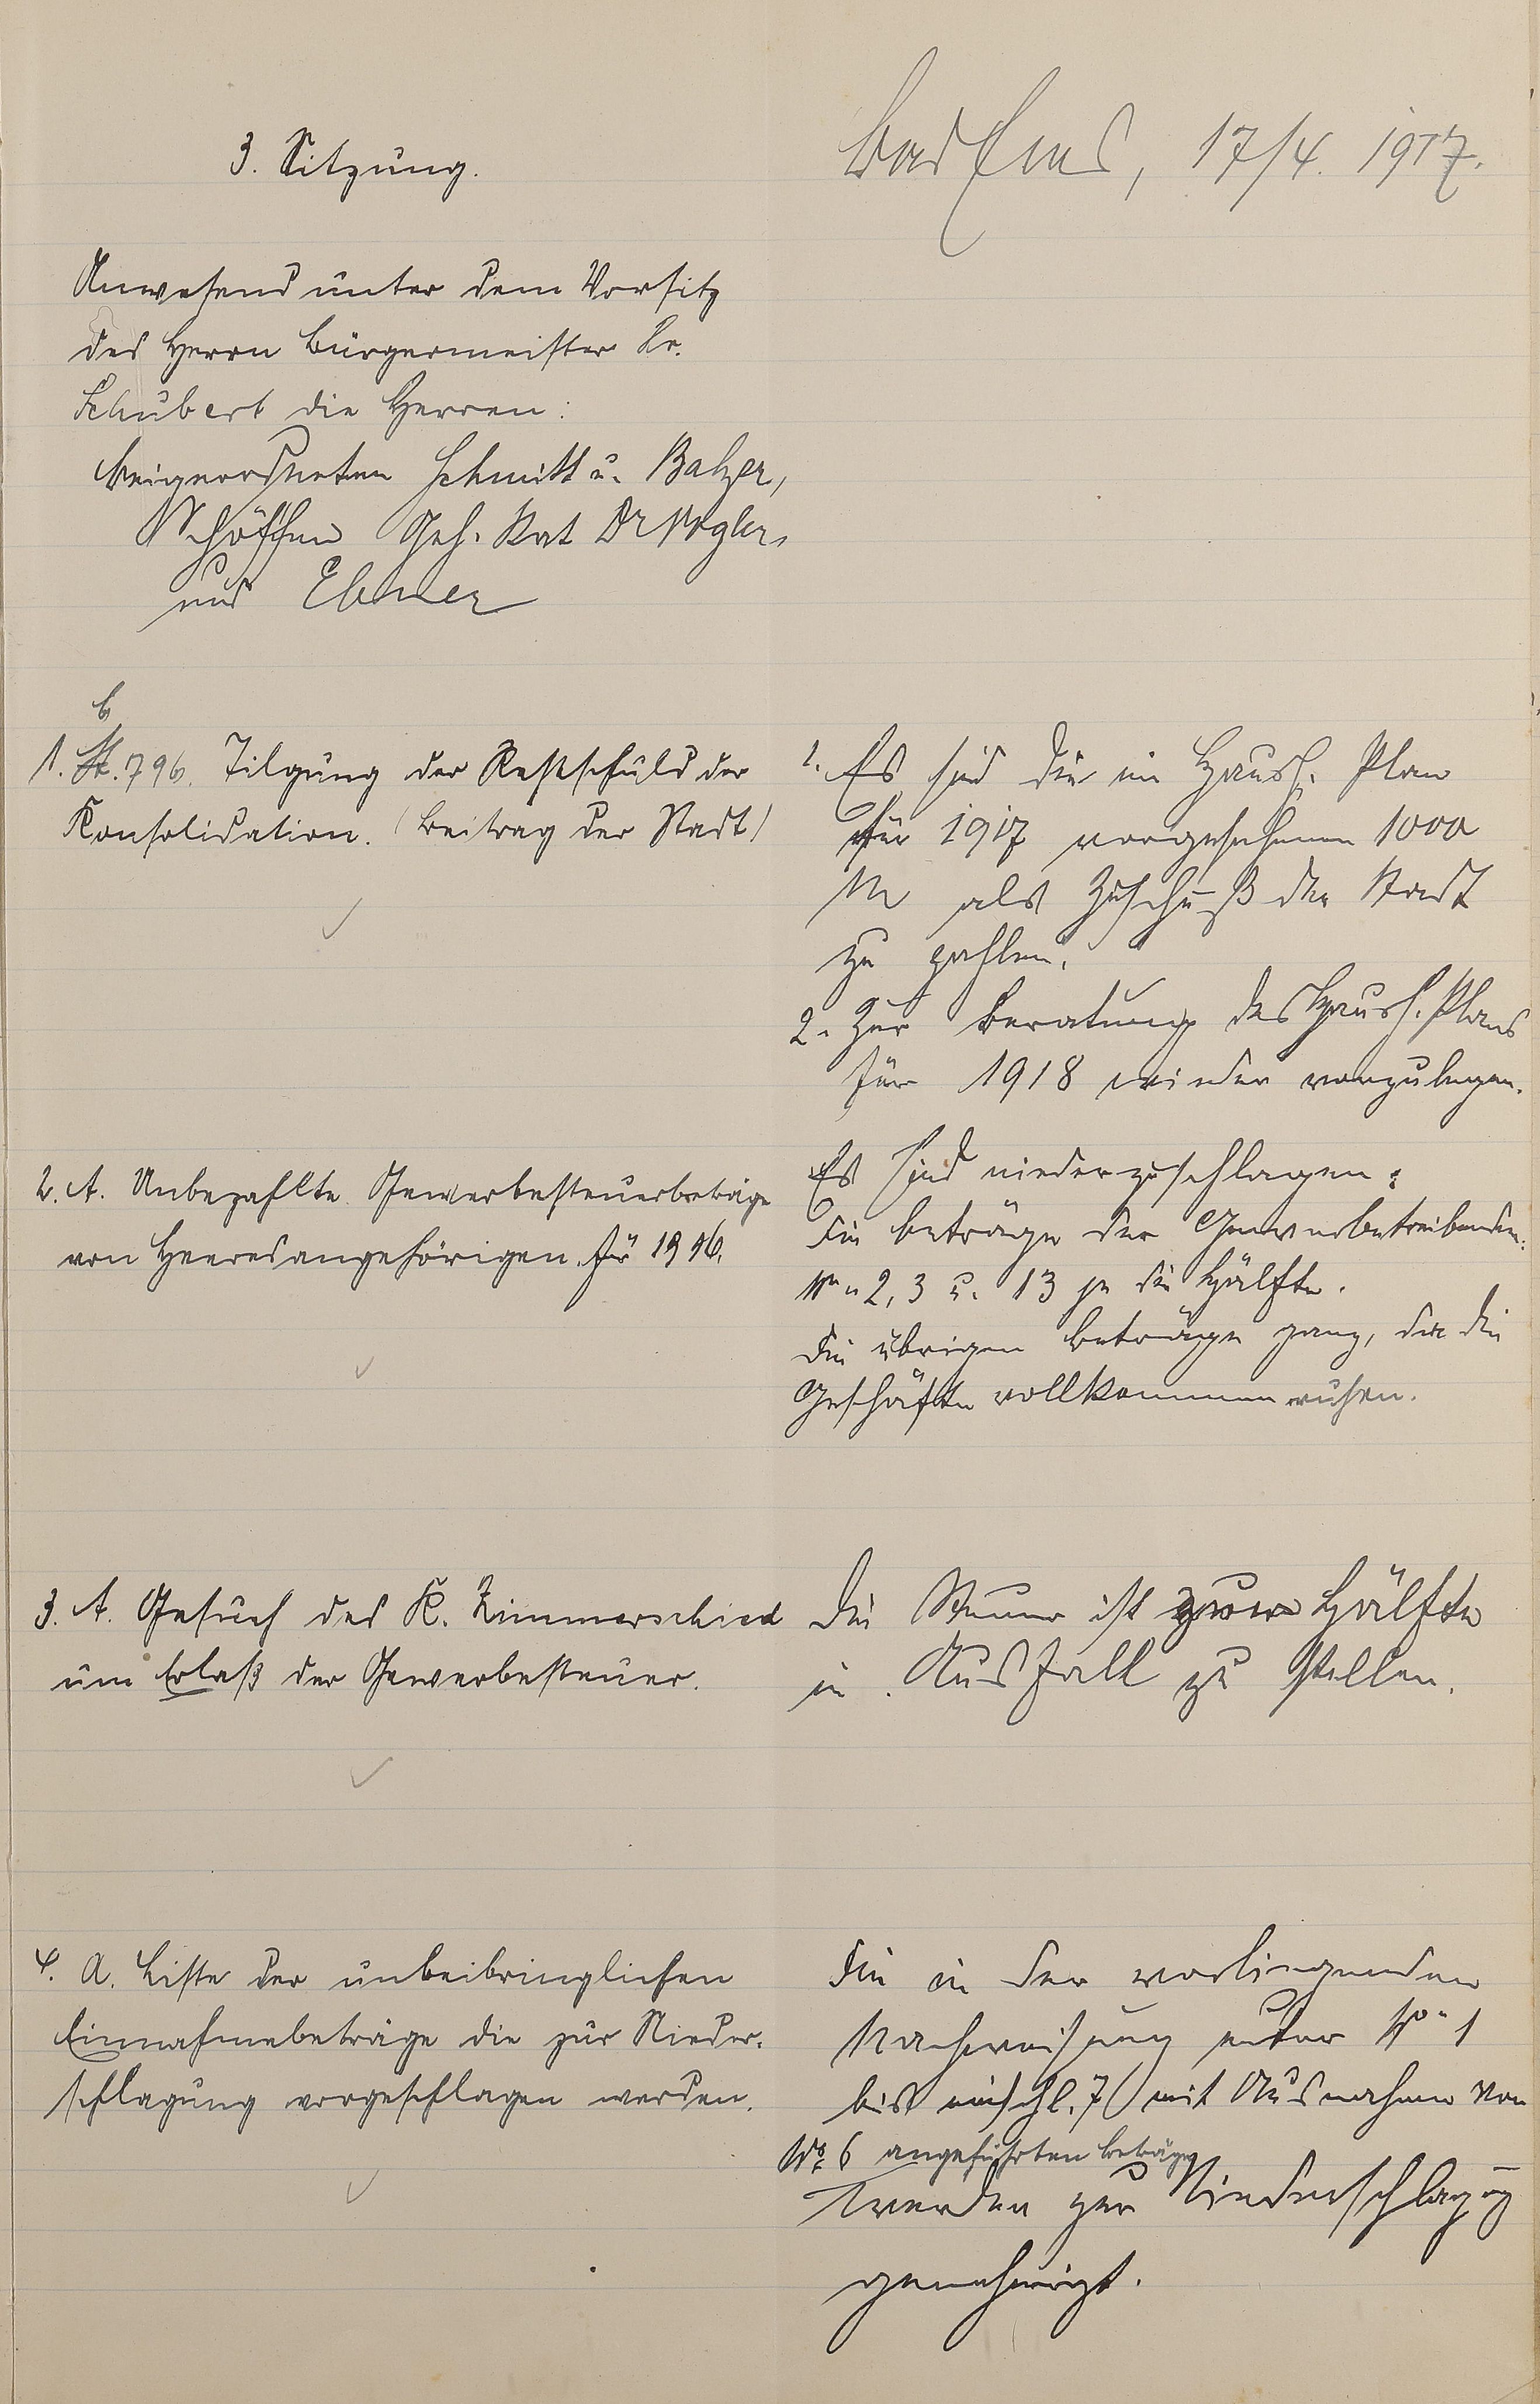 3. Sitzung.
Bad Ems, 17/4. 1917.
Anwesend unter dem Vorsitz
des Herrn Bürgermeister Dr.
Schubert die Herren:
Beigeordneten Schmitt u. Balzer,
Schöffen Geh. Rat Dr Vogler,
und Ebner
b
1. A. 796. Tilgung der Restschuld der
Konsolidation. (Beitrag der Stadt)
1. Es sind die im Haush. Plan
für 1917 vorgesehenen 1000
M als Zuschuß der Stadt
zu zahlen.
2. Zur Beratung des Haush. Plans
für 1918 wieder vorzulegen.
2. A. Unbezahlte Gewerbesteuerbeträge
von Heeresangehörigen für 1916.
Es sind niederzuschlagen:
Die Beträge der Gewerbetreibenden:
No 2, 3 u. 13 je die Hälfte.
Die übrigen Beträge ganz, da die
Geschäfte vollkommen ruhen.
3. A. Gesuch des K. Zimmerschied
um Erlaß der Gewerbesteuer.
Die Steuer ist zur Hälfte
in Ausfall zu stellen.
4. A. Liste der unbeibringlichen
Einnahmebeträge die zur Nieder-
schlagung vorgeschlagen werden.
Die in der vorliegenden
Nachweisung unter No 1
bis einschl. 7 (mit Ausnahme von
No 6 angeführten Beträge
werden zur Niederschlagung
genehmigt.